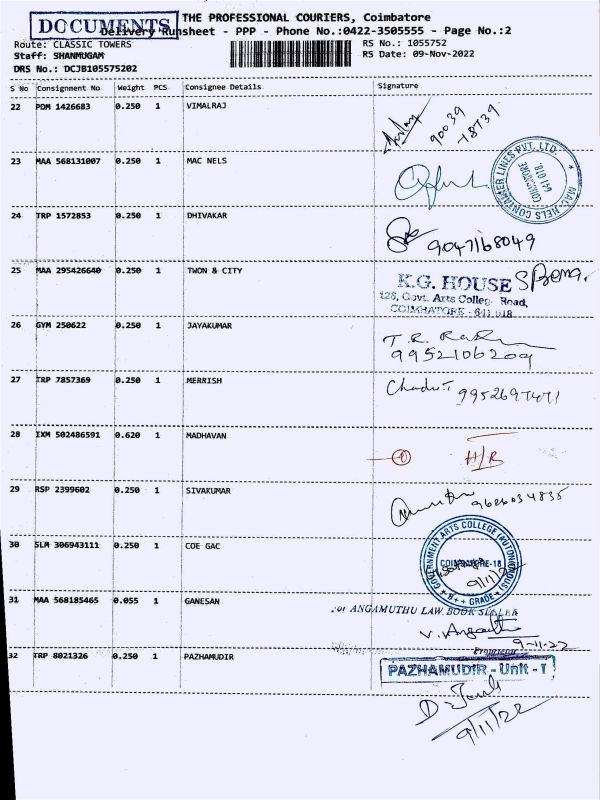 DOCUMENTS
THE PROFESSIONAL COURIERS, Coimbatore
Delivery Runsheet - PPP - Phone No.:0422-3505555 - Page No.:2
Route: CLASSIC TOWERS RS No.: 1055752
Staff: SHANMUGAM RS Date: 09-Nov-2022
DRS No.: DCJB105575202
S No Consignment No Weight PCS Consignee Details Signature
22 PDM 1426683 0.250 1 VIMALRAJ
90039
78739
23 MAA 568131007 0.250 1 MAC NELS
MAC NELS CONTAINER LINES PVT. LTD.
COIMBATORE
641 018.
24 TRP 1572853 0.250 1 DHIVAKAR
9047168049
25 MAA 295426640 0.250 1 TWON & CITY
K.G. HOUSE
126, Govt. Arts College Road,
COIMBATORE - 641 018
26 GYM 250622 0.250 1 JAYAKUMAR
9952106209
27 TRP 7857369 0.250 1 MERRISH
28 IXM 502486591 0.620 1 MADHAVAN
H/R
29 RSP 2399602 0.250 1 SIVAKUMAR
9626034835
30 SLM 306943111 0.250 1 COE GAC
GOVERNMENT ARTS COLLEGE (AUTONOMOUS)
COIMBATORE-18
B++ GRADE
9/11/22
31 MAA 568185465 0.055 1 GANESAN
ANGAMUTHU LAW BOOK SELLER
9-11-22
Proprietor
32 TRP 8021326 0.250 1 PAZHAMUDIR
PAZHAMUDIR - Unit - I
9/11/22